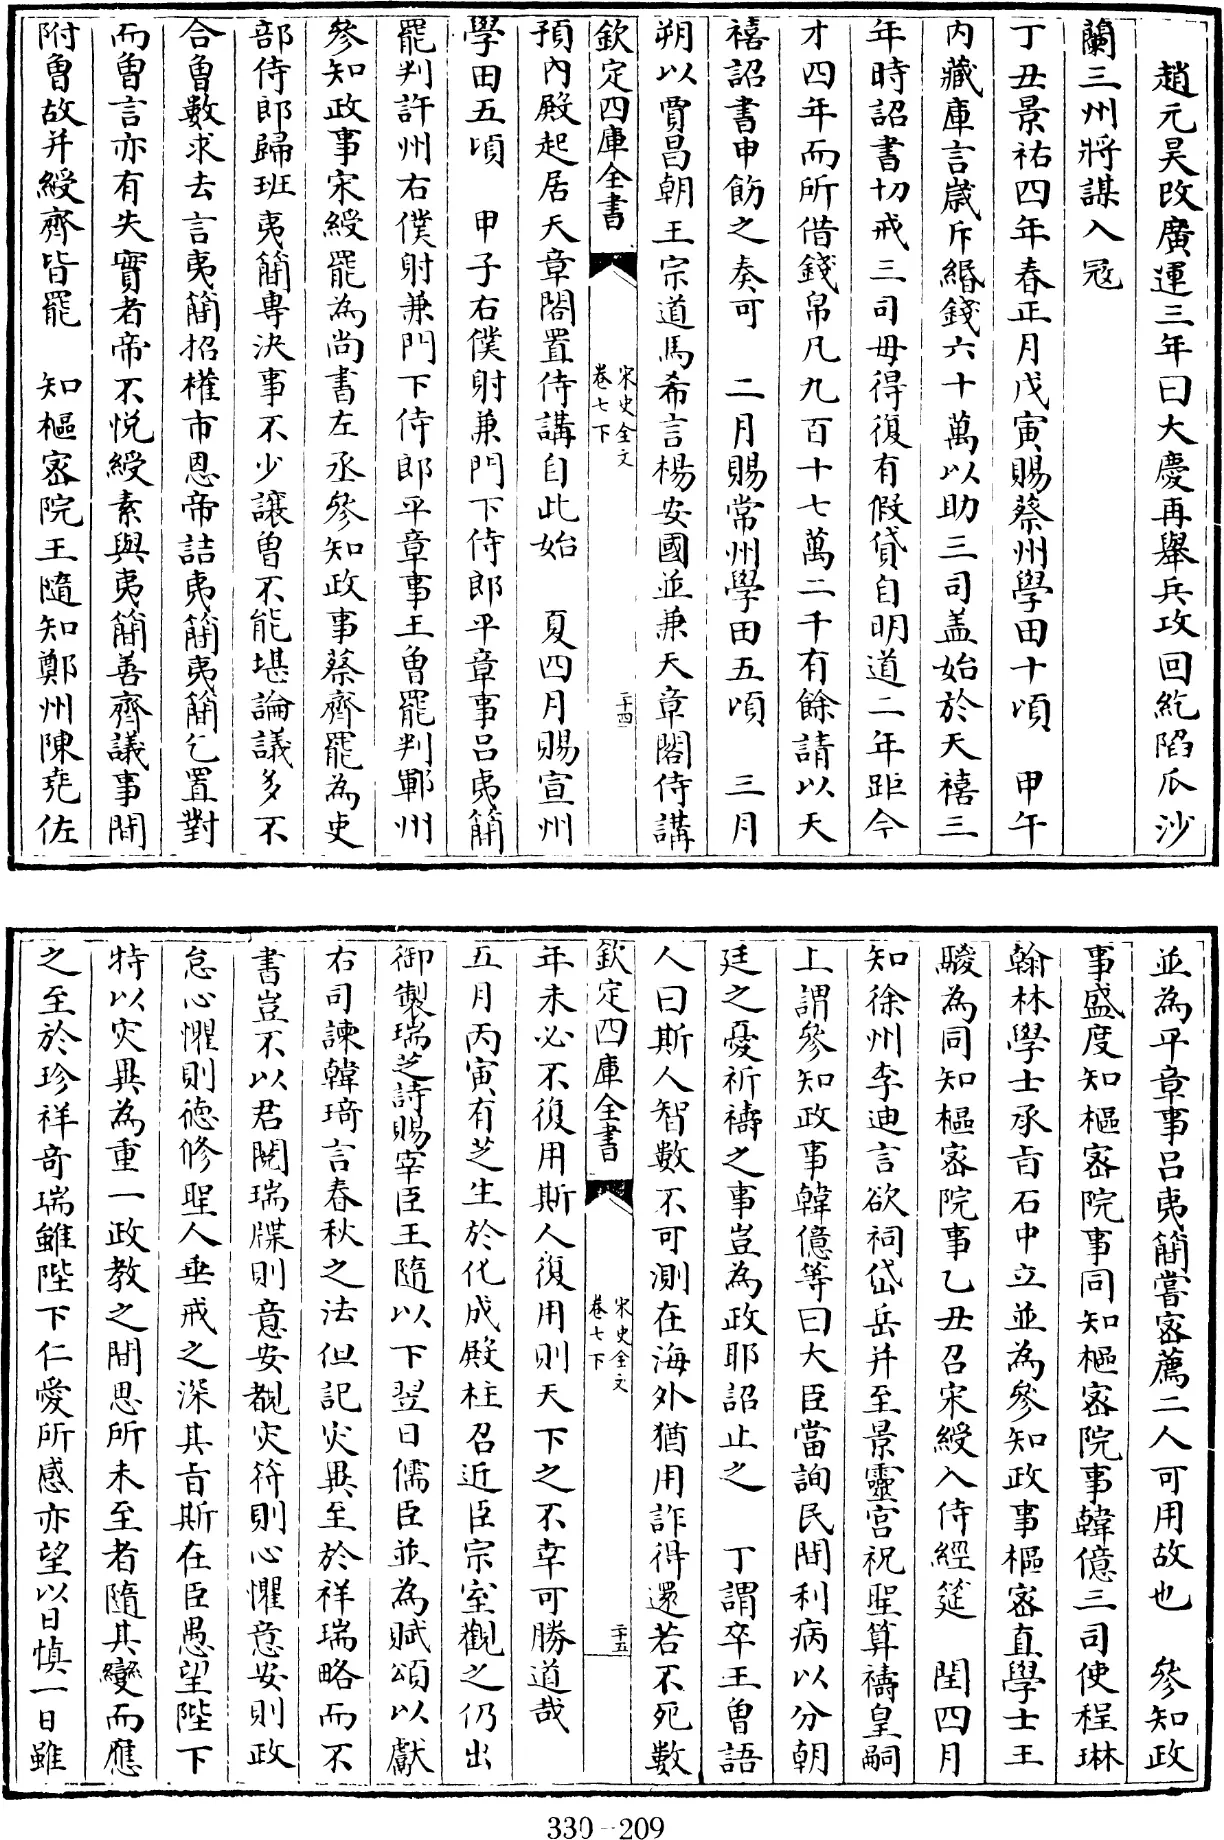 趙元昊改廣運三年曰大慶再舉兵攻回紇陷瓜沙
蘭三州將謀入冦
丁丑景祐四年春正月戊寅賜蔡州學田十頃　甲午
内藏庫言嵗斥緡錢六十萬以助三司盖始於天禧三
年時詔書切戒三司毋得復有假貸自明道二年距今
才四年而所借錢帛凡九百十七萬二千有餘請以天
禧詔書申飭之奏可　二月賜常州學田五頃　三月
朔以賈昌朝王宗道馬希言楊安國並兼天章閣侍講
欽定四庫全書
宋史全文
卷七下
二十四
預內殿起居天章閣置侍講自此始　夏四月賜宣州
學田五頃　甲子右僕射兼門下侍郎平章事吕夷簡
罷判許州右僕射兼門下侍郎平章事王曾罷判鄆州
參知政事宋綬罷為尚書左丞參知政事蔡齊罷為吏
部侍郎歸班夷簡專決事不少讓曾不能堪論議多不
合曾數求去言夷簡招權市恩帝詰夷簡夷簡乞置對
而曾言亦有失實者帝不悦綬素與夷簡善齊議事間
附曾故并綬齊皆罷　知樞密院王隨知鄭州陳堯佐
並為平章事吕夷簡嘗密薦二人可用故也　參知政
事盛度知樞密院事同知樞密院事韓億三司使程琳
翰林學士承旨石中立並為參知政事樞密直學士王
鬷為同知樞密院事乙丑召宋綬入侍經筵　閏四月
知徐州李迪言欲祠岱岳并至景靈宫祝聖算禱皇嗣
上謂參知政事韓億等曰大臣當詢民間利病以分朝
廷之憂祈禱之事豈為政耶詔止之　丁謂卒王曾語
人曰斯人智數不可測在海外猶用詐得還若不死數
欽定四庫全書
宋史全文
卷七下
二十五
年未必不復用斯人復用則天下之不幸可勝道哉
五月丙寅有芝生於化成殿柱召近臣宗室觀之仍出
御製瑞芝詩賜宰臣王隨以下翌日儒臣並為賦頌以獻
右司諫韓琦言春秋之法但記災異至於祥瑞略而不
書豈不以君閱瑞牒則意安覩災符則心懼意安則政
怠心懼則徳修聖人垂戒之深其旨斯在臣愚望陛下
特以災異為重一政教之間思所未至者隨其變而應
之至於珍祥奇瑞雖陛下仁愛所感亦望以日慎一日雖
330-209